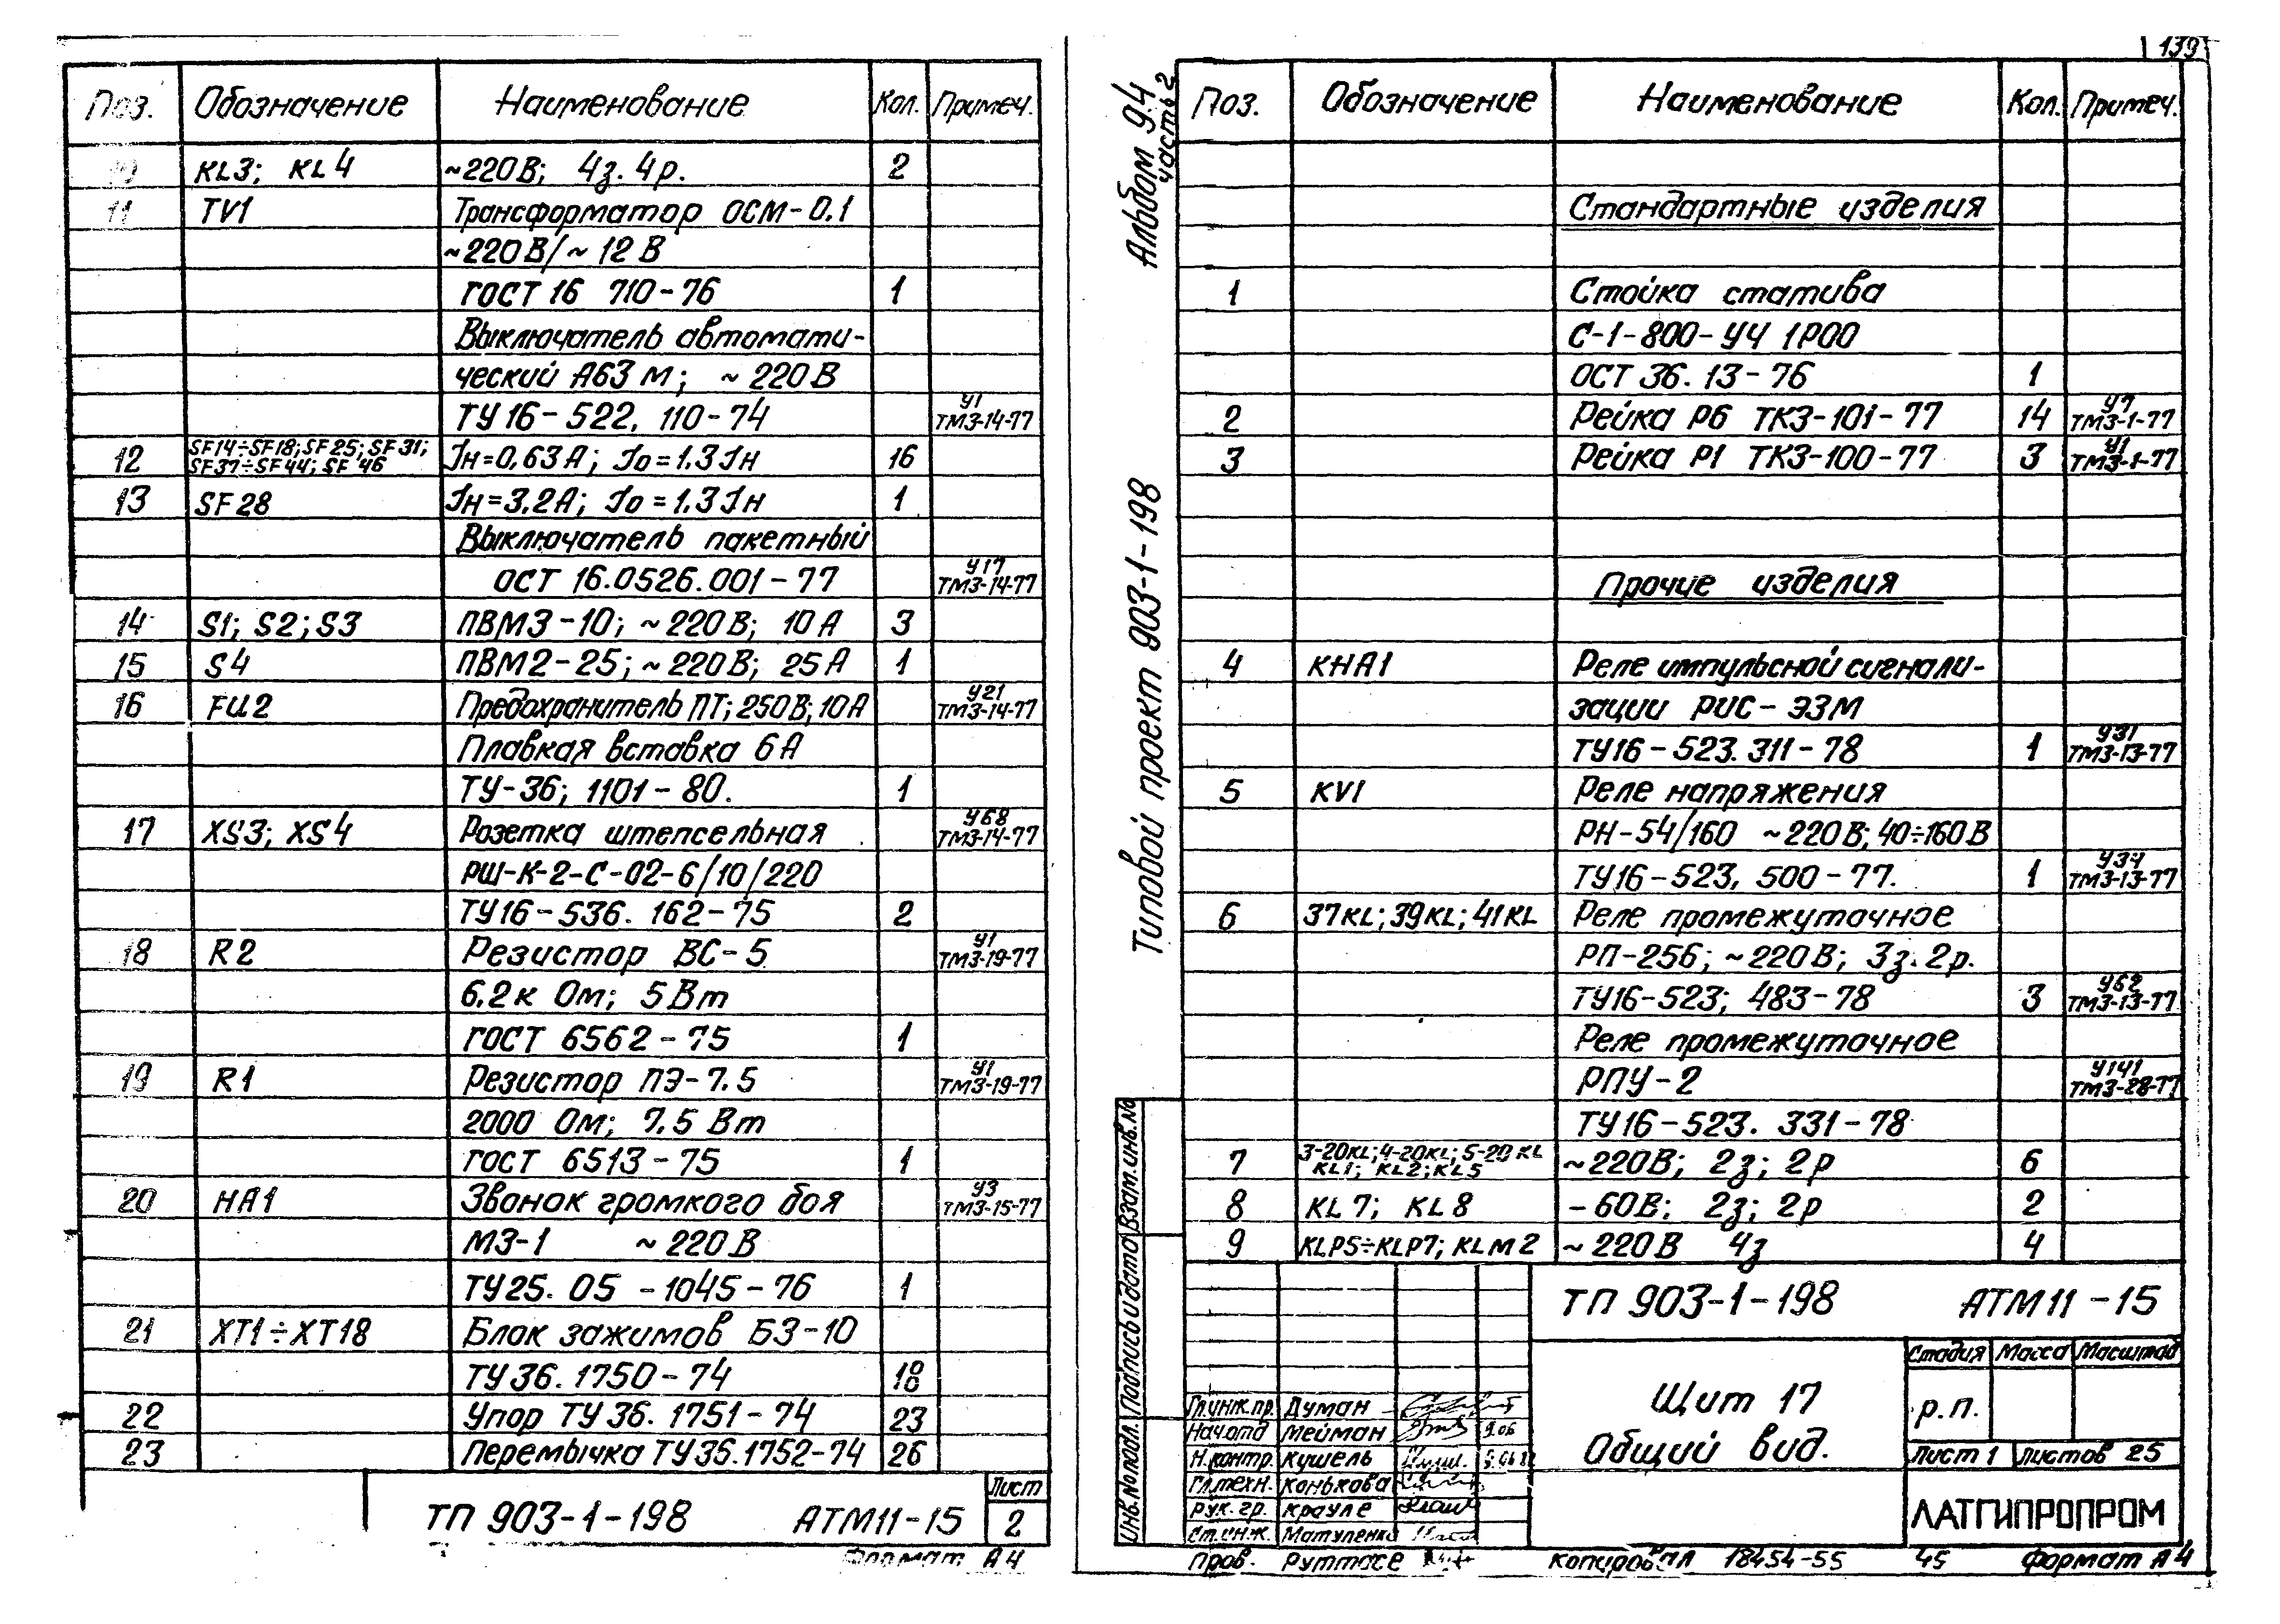 Поз. Обозначение Наименование Кол. Примеч.
KL3; KL4 ~220В; 4з. 4р. 2
11 TV1 Трансформатор ОСМ-0.1
~220В/~12В
ГОСТ 16 710-76 1
Выключатель автомати-
ческий А63М; ~220В
ТУ16-522, 110-74 У1 ТМ3-14-77
12 SF14÷SF18; SF25; SF31; SF37÷SF44; SF46 Jн=0,63А; Jо=1.3Jн 16
13 SF28 Jн=3.2А; Jо=1.3Jн 1
Выключатель пакетный
ОСТ 16.0526.001-77 У17 ТМ3-14-77
14 S1; S2; S3 ПВМ3-10; ~220В; 10А 3
15 S4 ПВМ2-25; ~220В; 25А 1
16 FU2 Предохранитель ПТ; 250В; 10А У21 ТМ3-14-77
Плавкая вставка 6А
ТУ-36; 1101-80. 1
17 XS3; XS4 Розетка штепсельная У68 ТМ3-14-77
РШ-К-2-С-02-6/10/220
ТУ16-536. 162-75 2
18 R2 Резистор ВС-5 У1 ТМ3-19-77
6.2к Ом; 5Вт
ГОСТ 6562-75 1
19 R1 Резистор ПЭ-7.5 У1 ТМ3-19-77
2000 Ом; 7.5 Вт
ГОСТ 6513-75 1
20 НА1 Звонок громкого боя У3 ТМ3-15-77
МЗ-1 ~220В
ТУ25. 05-1045-76 1
21 XT1÷XT18 Блок зажимов БЗ-10
ТУ36. 1750-74 18
22 Упор ТУ36. 1751-74 23
23 Перемычка ТУ36.1752-74 26
ТП 903-1-198 АТМ11-15 Лист 2
Формат А4
139
Альбом 9.4
часть 2
Типовой проект 903-1-198
Поз. Обозначение Наименование Кол. Примеч.
Стандартные изделия
1 Стойка статива
С-1-800-У4 1Р00
ОСТ 36. 13-76 1
2 Рейка Р6 ТК3-101-77 14 У7 ТМ3-1-77
3 Рейка Р1 ТК3-100-77 3 У1 ТМ3-1-77
Прочие изделия
4 КНА1 Реле импульсной сигнали-
зации РИС-Э3М
ТУ16-523. 311-78 1 У31 ТМ3-13-77
5 KV1 Реле напряжения
РН-54/160 ~220В; 40÷160В
ТУ16-523, 500-77. 1 У34 ТМ3-13-77
6 37KL; 39KL; 41KL Реле промежуточное
РП-256; ~220В; 3з. 2р.
ТУ16-523; 483-78 3 У62 ТМ3-13-77
Реле промежуточное
РПУ-2 У141 ТМ3-28-77
ТУ16-523. 331-78
7 3-20KL; 4-20KL; 5-20KL KL1; KL2; KL5 ~220В; 2з; 2р 6
8 KL7; KL8 -60В; 2з; 2р 2
9 KLP5÷KLP7; KLM2 ~220В 4з 4
Инв.№подл. Подпись и дата Взам.инв.№
ТП 903-1-198 АТМ11-15
Щит 17
Общий вид.
Стадия Масса Масштаб
Р.П.
Лист 1 Листов 25
ЛАТГИПРОПРОМ
Гл.инж.пр. Думан
Нач.отд Мейман 9.06
Н.контр. Кушель
Гл.техн. Конькова
Рук. гр. Крауле
Ст.инж. Матуленко
Пров. Руттасе
Копировал 18454-55 45 Формат А4